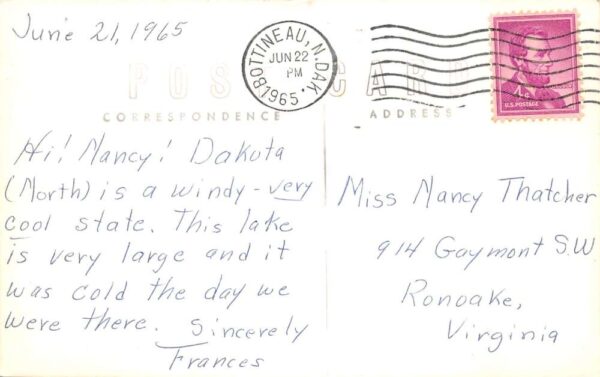 June 21, 1965
BOTTINEAU, N. DAK.
JUN 22
PM
1965
4¢
U.S. POSTAGE
POST CARD
CORRESPONDENCE
ADDRESS
Hi! Nancy! Dakota
(North) is a windy - very
cool state. This lake
is very large and it
was cold the day we
were there. Sincerely
Frances
Miss Nancy Thatcher
914 Gaymont S.W
Ronoake,
Virginia